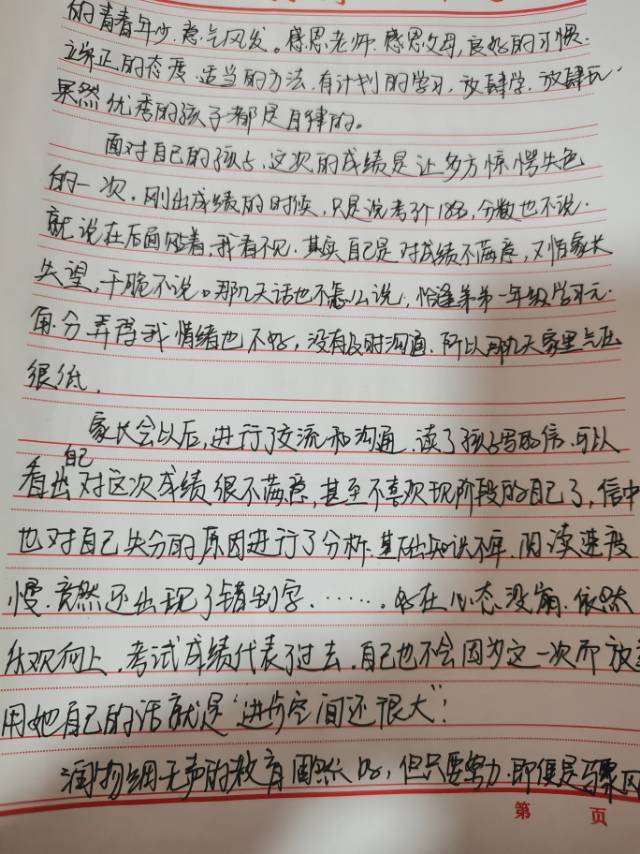 的青春年少,意气风发。感恩老师.感恩父母,良好的习惯.
端正的态度.适当的方法.有计划的学习,放肆学.放肆玩.
果然优秀的孩子都是自律的。
面对自己的孩子,这次的成绩是让多方惊愕失色
的一次,刚出成绩的时候,只是说考个183,分数也不说.
就说在后面贴着,我看不见.其实自己是对成绩不满意,又怕家长
失望,干脆不说。那几天话也不怎么说,恰逢弟弟一年级学习元.
每分弄得我情绪也不好,没有及时沟通.所以那几天家里气压
很低.
家长会以后,进行了交流和沟通.读了孩子写的信.可以
看出自己对这次成绩很不满意,甚至不喜欢现阶段的自己了,信中
也对自己失分的原因进行了分析.基础知识不牢.阅读速度
慢.竟然还出现了错别字.......好在心态没崩.依然
乐观向上.考试成绩代表了过去.自己也不会因为这一次而放
用她自己的话就是“进步空间还很大”!
润物细无声的教育固然好,但只要努力.即便是骤风
第 页